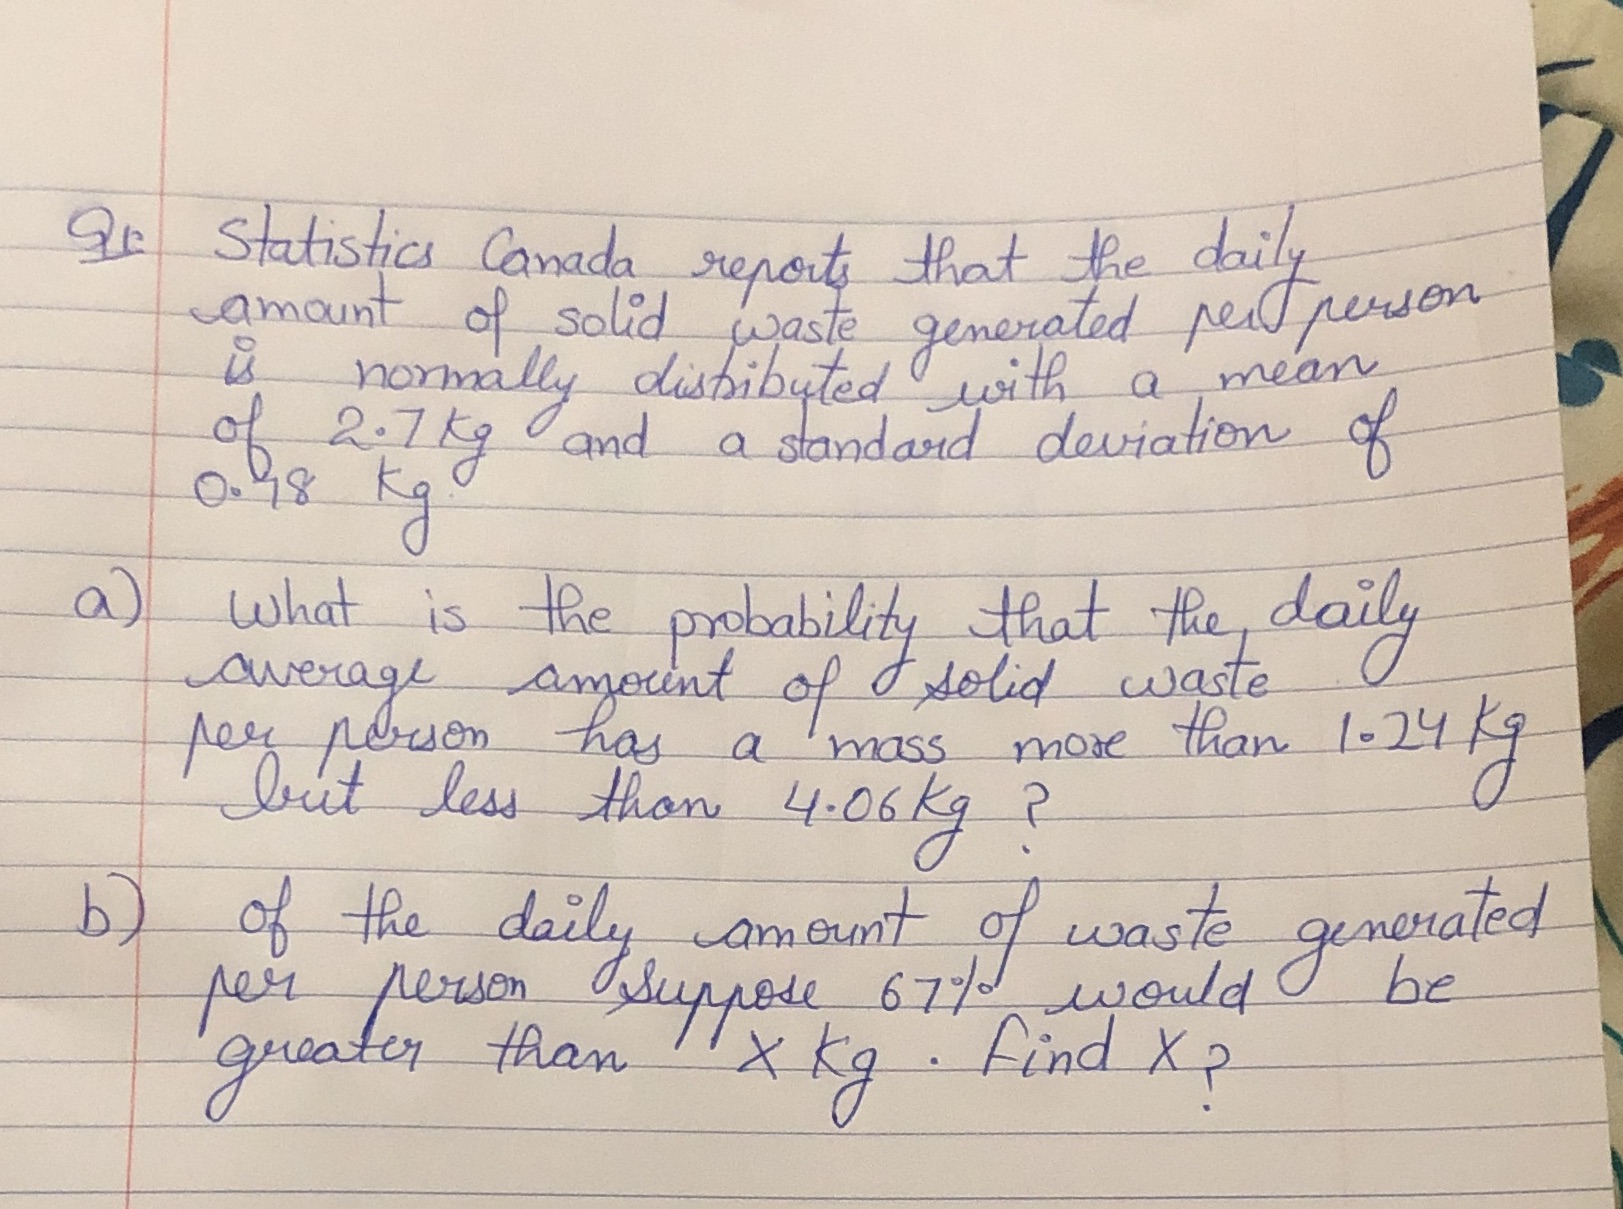 Q1: Statistics Canada reports that the daily
amount of solid waste generated per person
is normally distributed with a mean
of 2.7 kg and a standard deviation of
0.48 kg.
a) What is the probability that the daily
average amount of solid waste
per person has a mass more than 1.24 kg
but less than 4.06 kg ?
b) of the daily amount of waste generated
per person suppose 67% would be
greater than X kg . find X ?